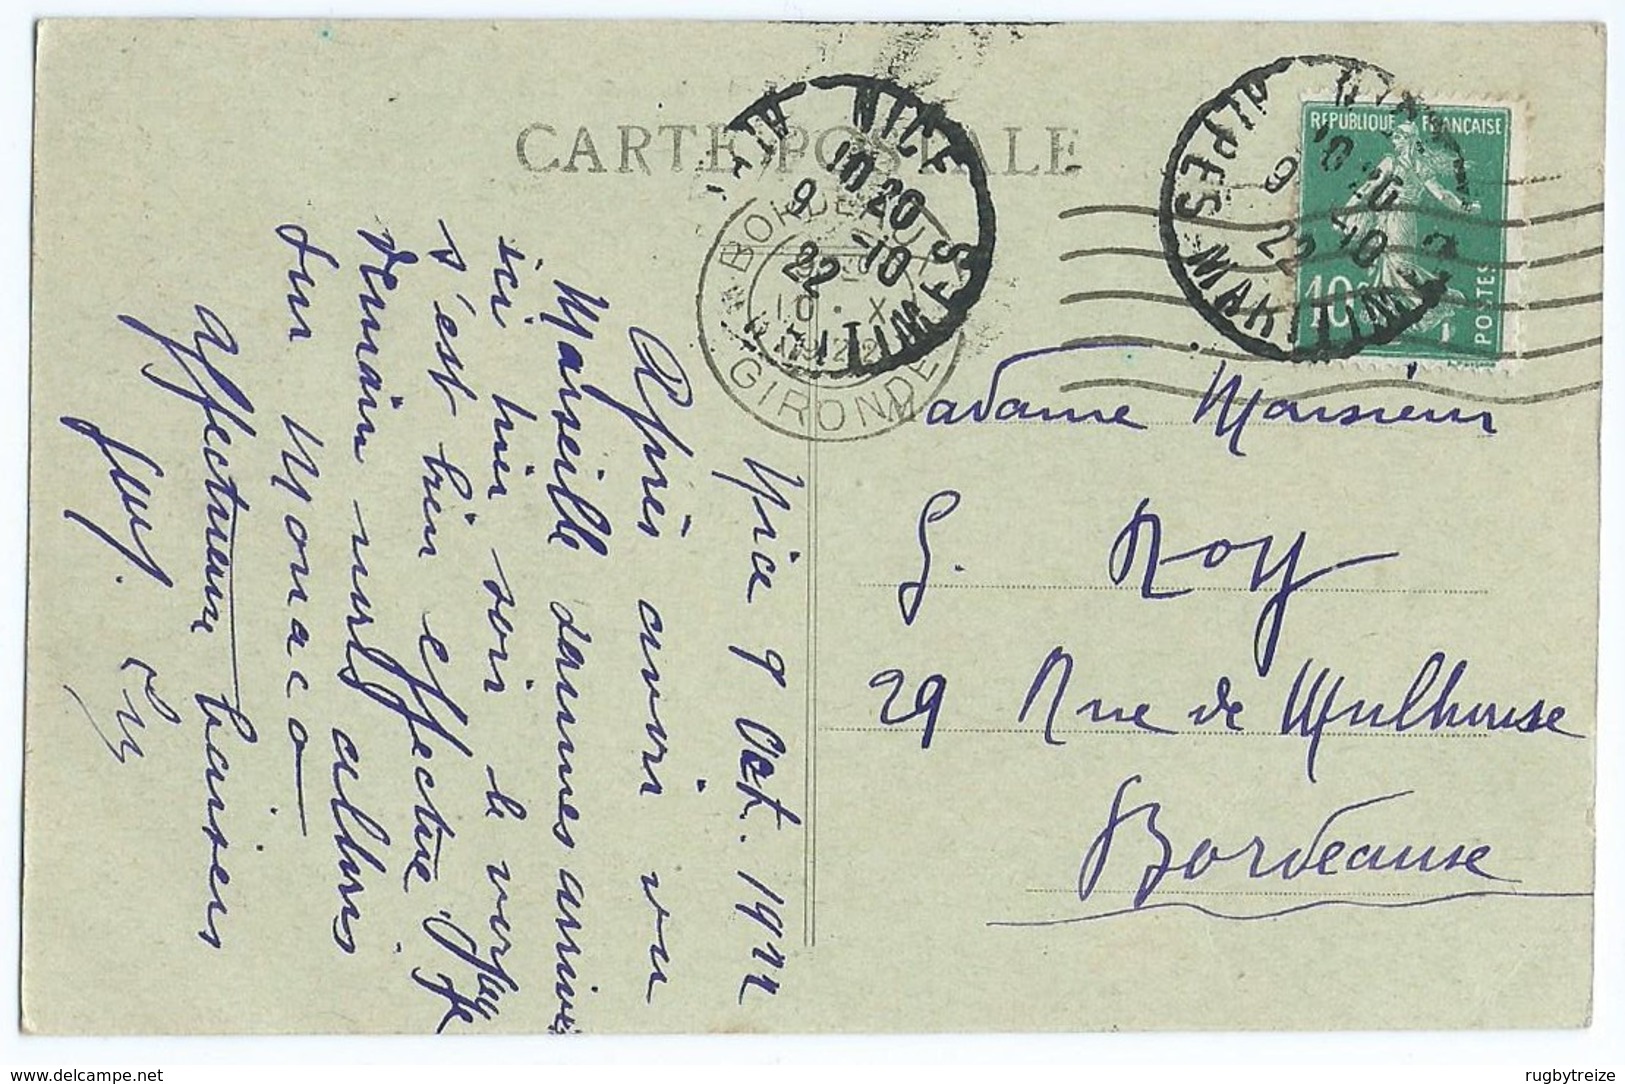 CARTE POSTALE
NICE
ALPES MARITIMES
10 20
9 -10
22
BORDEAUX
10 · X
1922
GIRONDE
RÉPUBLIQUE FRANÇAISE
10c
POSTES
Nice 9 Oct. 1922
Après avoir vu
Marseille sommes arrivés
ici hier soir le voyage
s'est bien effectué
demain nous allons
sur Monaco
Affectueux baisers
Madame Monsieur
G. Roy
29 Rue de Mulhouse
Bordeaux
https://www.delcampe.net
rugbytreize